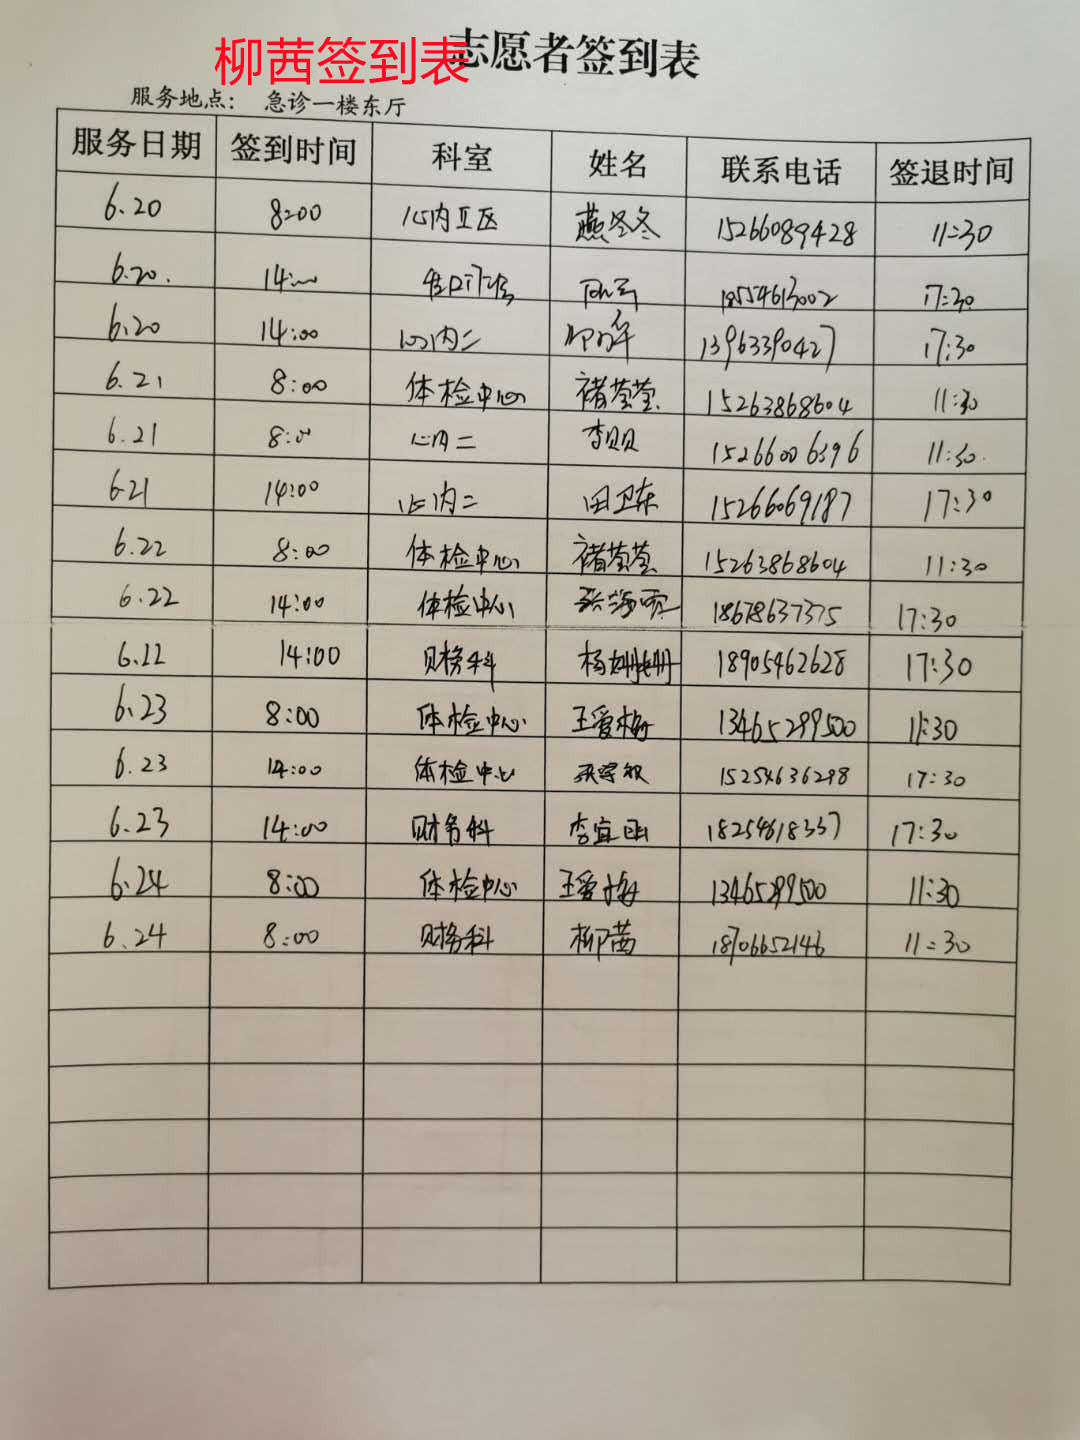 柳茜签到表
志愿者签到表
服务地点： 急诊一楼东厅
服务日期 签到时间 科室 姓名 联系电话 签退时间
6.20 8:00 心内II区 燕冬冬 15266089428 11:30
6.20. 14: 18554613002 17:30
6.20 14:00 心内二 13963390427 17:30
6.21 8:00 体检中心 褚莹莹 15263868604 11:30
6.21 8:00 心内二 李贝贝 15266006396 11:30.
6.21 14:00 心内二 田卫东 15266069187 17:30
6.22 8:00 体检中心 褚莹莹 15263868604 11:30
6.22 14:00 体检中心 18678637375 17:30
6.22 14:00 财务科 杨姗姗 18905462628 17:30
6.23 8:00 体检中心 王爱梅 13465299500 11:30
6.23 14:00 体检中心 15254636298 17:30
6.23 14:00 财务科 李宜函 18254618337 17:30
6.24 8:00 体检中心 王爱梅 13465299500 11:30
6.24 8:00 财务科 柳茜 18706652146 11:30